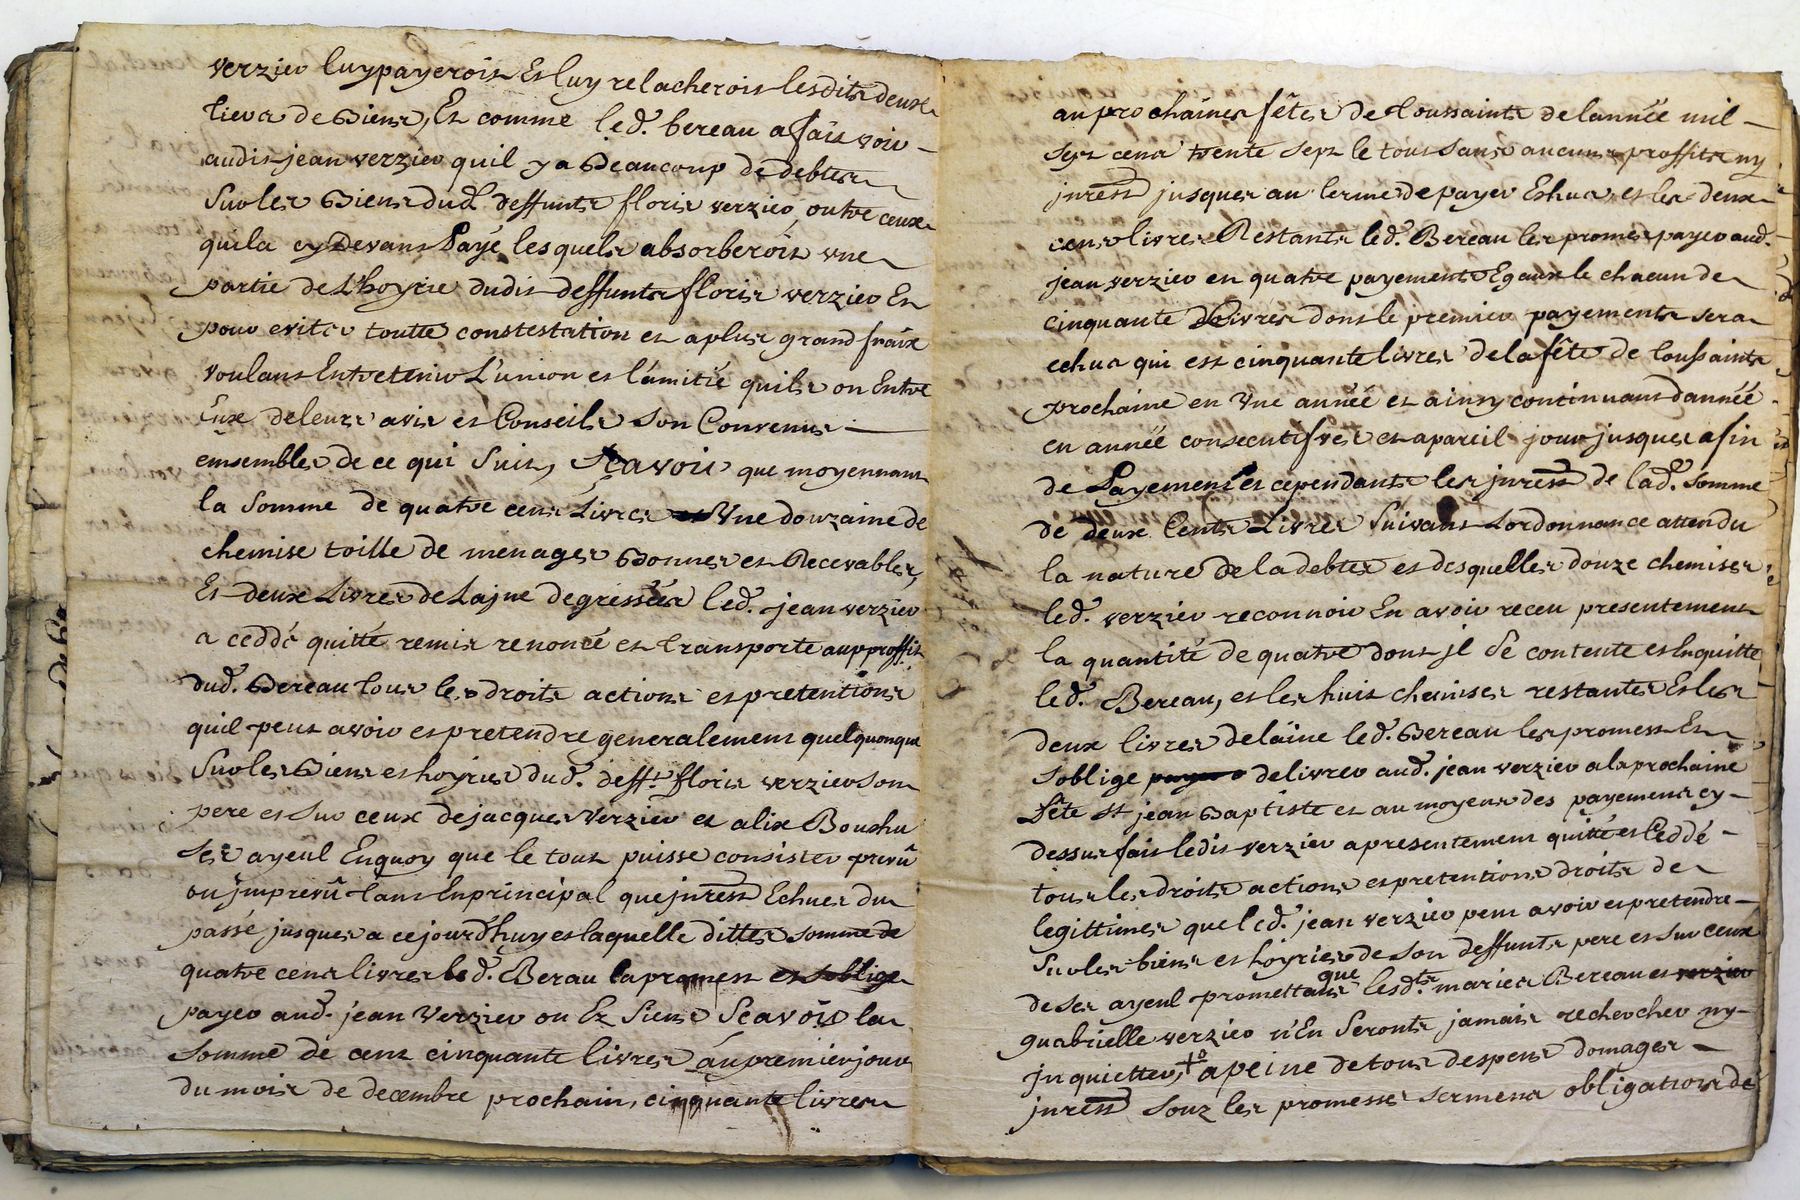 verzier luy payeroit Et luy relacheroit lesdits deux
lieux de Biens, Et comme led. bereau a fait voir
audit jean verzier quil y a Beaucoup de debtes
Sur les Biens dud. deffunts floris verzier outre ceux
quil a cy Devant Payé lesquels absorberoit une
partie de L'hoyrie dudit deffunts floris verzier Et
pour eviter toutte constestation et a plus grand fraix
voulans Entretenir L'union et l'amitié quils on Entre
Eux de leurs avis et Conseils Son Convenus
emsembles de ce qui Suit, Sçavoir que moyennant
la Somme de quatre cens Livres et Une douzaine de
chemise toille de menages Bonnes et Recevables,
Et deux Livres de Lajne degressées led. jean verzier
a ceddé quitté remis renoncé et transporte aupproffit
dud. Bereau tous les droits actions et pretentions
quil peut avoir et pretendre generalement quelquonque
Sur les Biens et hoyries dud. deff.t floris verzier son
pere et Sur ceux de jacques Verzier et alix Bouchu
Ses ayeul Enquoy que le tout puisse consister prevû
ou jmprevû tant En principal que jnrest Echues du
passé jusques a ce jourd'huy et laquelle ditte somme de
quatre cens livres led. Berau la promest et soblige
payer aud. jean Verzier ou Ez Siens Scavoir la
somme de cent cinquante livres au premier jour
du mois de decembre prochain, cinquante livres
au prochaines fêtes de toussaints de lannéé mil
sept cens trente sept le tout sans aucuns proffits ny
jnrest jusques au terme de payer Eshus et les deux
cens livres Restants led. Bereau les promes payer aud.
jean verzier en quatre payements Egaux le chacun de
cinquante Livres dont le premier payements sera
echus qui est cinquante livres de la fête de toussaints
prochaine en Une annéé et ainsy continuant d'annéé
en année consecutifves et a pareil jour jusques a fin
de Payement et cependants les jnrest de lad. somme
de deux Cents Livres Suivant Lordonnance attendu
la nature de la debtes et desquelles douze chemises
led. verzier reconnoir En avoir receu presentement
la quantité de quatre dont jl se contente et En quitte
led. Bereau, et les huit chemises restantes Et les
deux livres de laine led. Bereau les promest Et
soblige payer delivrer aud. jean verzier a la prochaine
fête st jean Baptiste et au moyens des payemens cy
dessus fait ledit verzier a presentement quitté et Ceddé
tous les droits actions et pretentions droits de
legittimes que led. jean verzier peut avoir et pretendre
Sur les biens et hoyries de son deffunts pere et Sur ceux
de ses ayeul promettans que lesd.ts maries Bereau et verzier
guabrielle verzier n'En Seronts jamais rechercher ny
jnquietter, a peine de tous despens domages
jnrest souz les promesses sermens obligations de